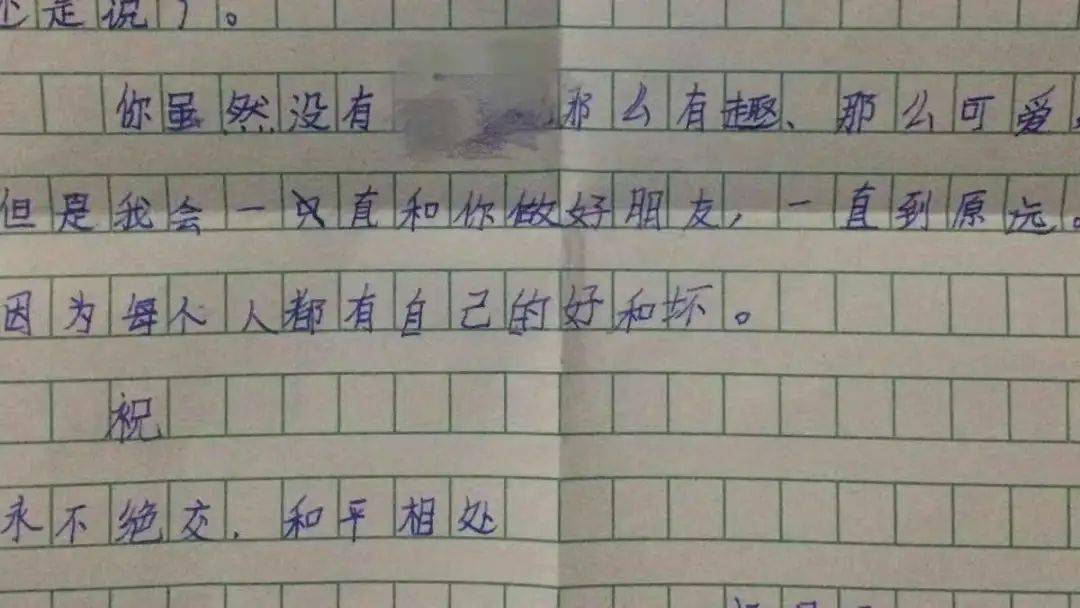 是说)。
你虽然没有 那么有趣、那么可爱,
但是我会一直和你做好朋友,一直到原远。
因为每个人都有自己的好和坏。
祝
永不绝交,和平相处